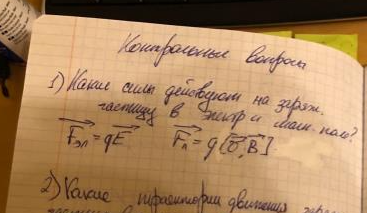 Контрольные вопросы
1) Какие силы действуют на заряж.
частицу в электр и магн. поле?
F⃗эл = qE⃗ F⃗л = q[υ⃗, B⃗]
2) Какие траектории движения заря